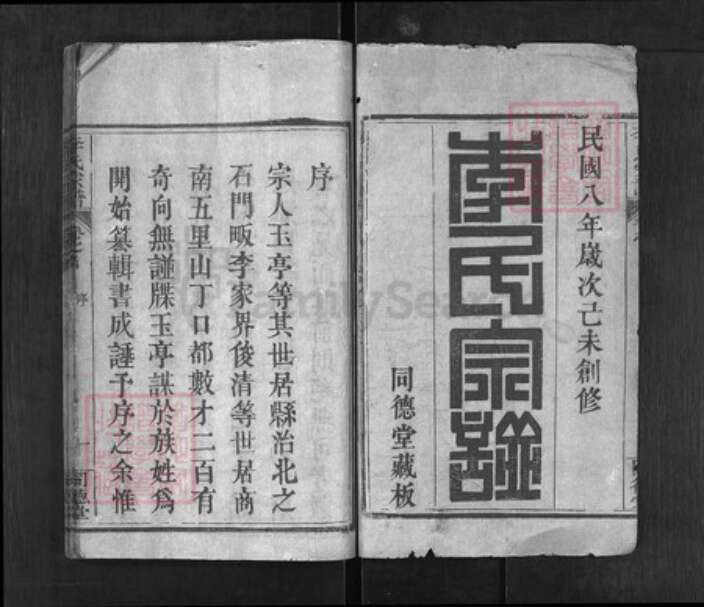 民國八年歲次己未創修
李氏宗譜
同德堂藏板
序
宗人玉亭等其世居縣治北之
石門畈李家界俊清等世居商
南五里山丁口都數才二百有
奇向無譜牒玉亭謀於族姓為
開始纂輯書成諈予序之余惟
李氏宗譜
序
同德堂
FamilySearch